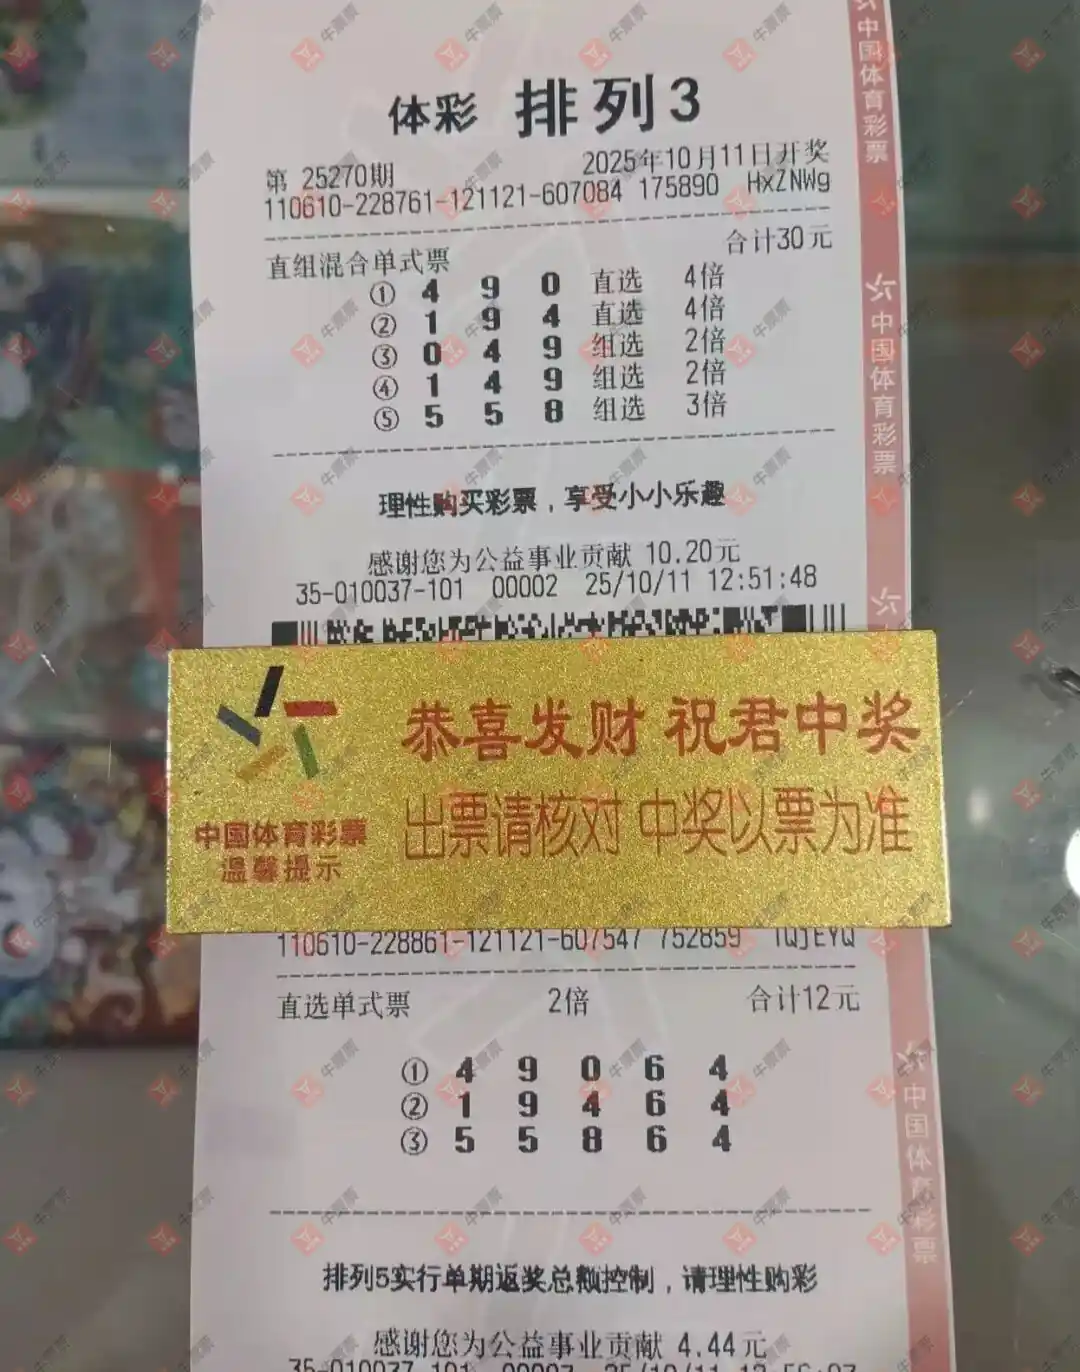 体彩 排列3
第 25270期 2025年10月11日开奖
110610-228761-121121-607084 175890 HxZNWg
直组混合单式票 合计30元
① 4 9 0 直选 4倍
② 1 9 4 直选 4倍
③ 0 4 9 组选 2倍
④ 1 4 9 组选 2倍
⑤ 5 5 8 组选 3倍
理性购买彩票，享受小小乐趣
感谢您为公益事业贡献 10.20元
35-010037-101 00002 25/10/11 12:51:48
恭喜发财 祝君中奖
出票请核对 中奖以票为准
中国体育彩票
温馨提示
110610-228861-121121-607547 752859 TQjEYQ
直选单式票 2倍 合计12元
① 4 9 0 6 4
② 1 9 4 6 4
③ 5 5 8 6 4
排列5实行单期返奖总额控制，请理性购彩
感谢您为公益事业贡献 4.44元
中国体育彩票
中国体育彩票
中国体育彩票
牛票票